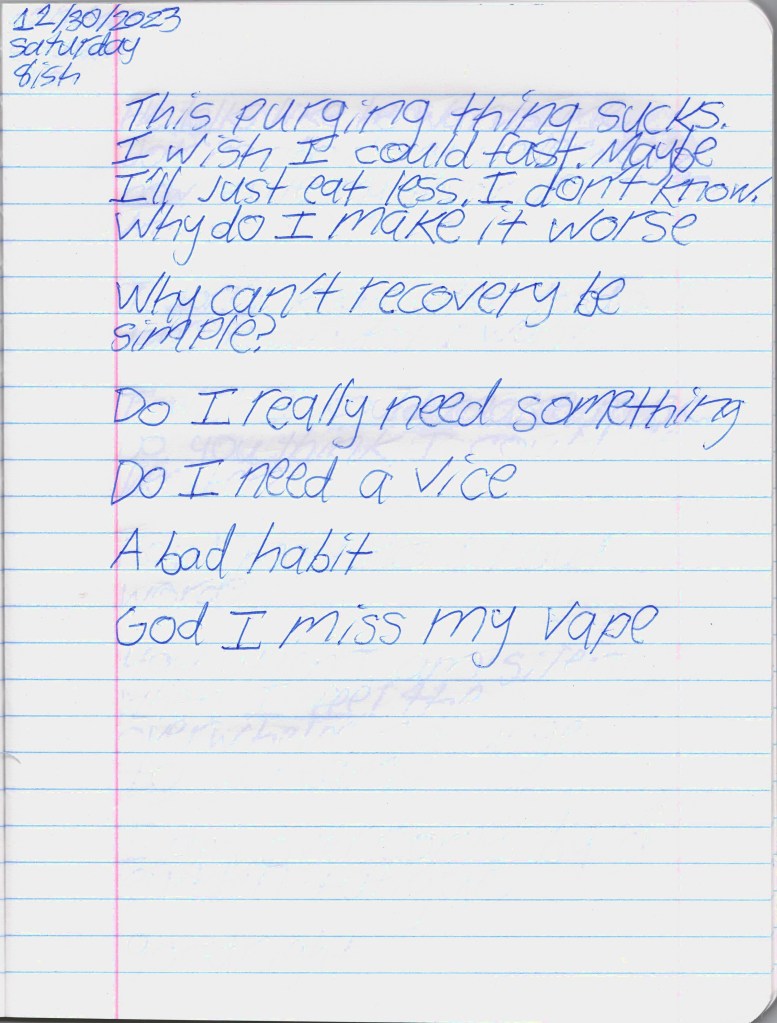 12/30/2023
saturday
8ish
This purging thing sucks.
I wish I could fast. Maybe
I'll just eat less. I don't know.
Why do I make it worse
Why can't recovery be
simple?
Do I really need something
Do I need a vice
A bad habit
God I miss my vape